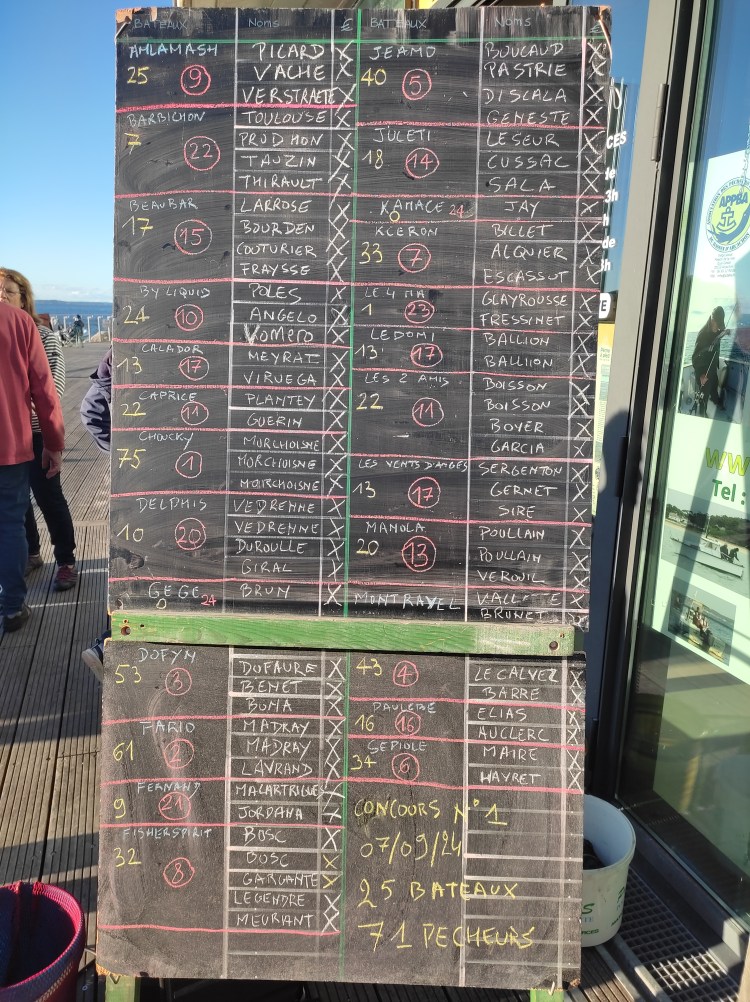 BATEAUX NOMS €
AHLAMASH PICARD X
25 9 VACHE X
VERSTRAETE X
BARBICHON TOULOUSE X
7 22 PRODHON X
TAUZIN X
THIRAULT X
BEAUBAR LARROSE X
17 15 BOURDEN X
COUTURIER X
FRAYSSE X
BY LIQUID POLES X
24 10 ANGELO X
ROMERO X
CALADOR MEYRAT X
13 17 VIRUEGA X
CAPRICE PLANTEY X
22 11 GUERIN X
CHOUCKY MORCHOISNE X
75 1 MORCHOISNE X
MORCHOISNE X
DELPHIS VEDRENNE X
10 20 VEDRENNE X
DUROULLE X
GIRAL X
GEGE BRUN X
0 24
DOFYN DUFAURE X
53 3 BENET X
BOMA X
FARIO MADRAY X
61 2 MADRAY X
LAVRAND X
FERNAND MALARTRIGUES
9 21 JORDANA X
FISHERSPIRIT BOSC X
32 8 BOSC X
GARGANTE X
LEGENDRE X
MEURANT X
BATEAUX NOMS €
JEAMO BOUCAUD X
40 5 PASTRIE X
DISCALA X
GENESTE X
JULETI LESEUR X
18 14 CUSSAC X
SALA X
KAMACE 24 JAY X
0
KCERON BILLET X
33 7 ALQUIER X
ESCASSUT X
LE 4 MA GLAYROUSSE X
1 23 FRESSINET X
LEDOMI BALLION X
13 17 BALLION X
LES 2 AMIS BOISSON X
22 11 BOISSON X
BOYER X
GARCIA X
LES VENTS D'ANGES SERGENTON X
13 17 GERNET X
SIRE X
MANOLA POULLAIN X
20 13 POULLAIN X
VEROUIL X
MONTRAVEL VALLETTE X
BRUNET
43 4 LE CALVEZ X
BARRE X
PAULEBE ELIAS X
16 16 AUCLERC X
SEPIOLE MAIRE X
34 6 HAYRET X
CONCOURS N°1
07/09/24
25 BATEAUX
71 PECHEURS
CES
de
3h
h
de
8h
E
APPBA
WW
Tel :